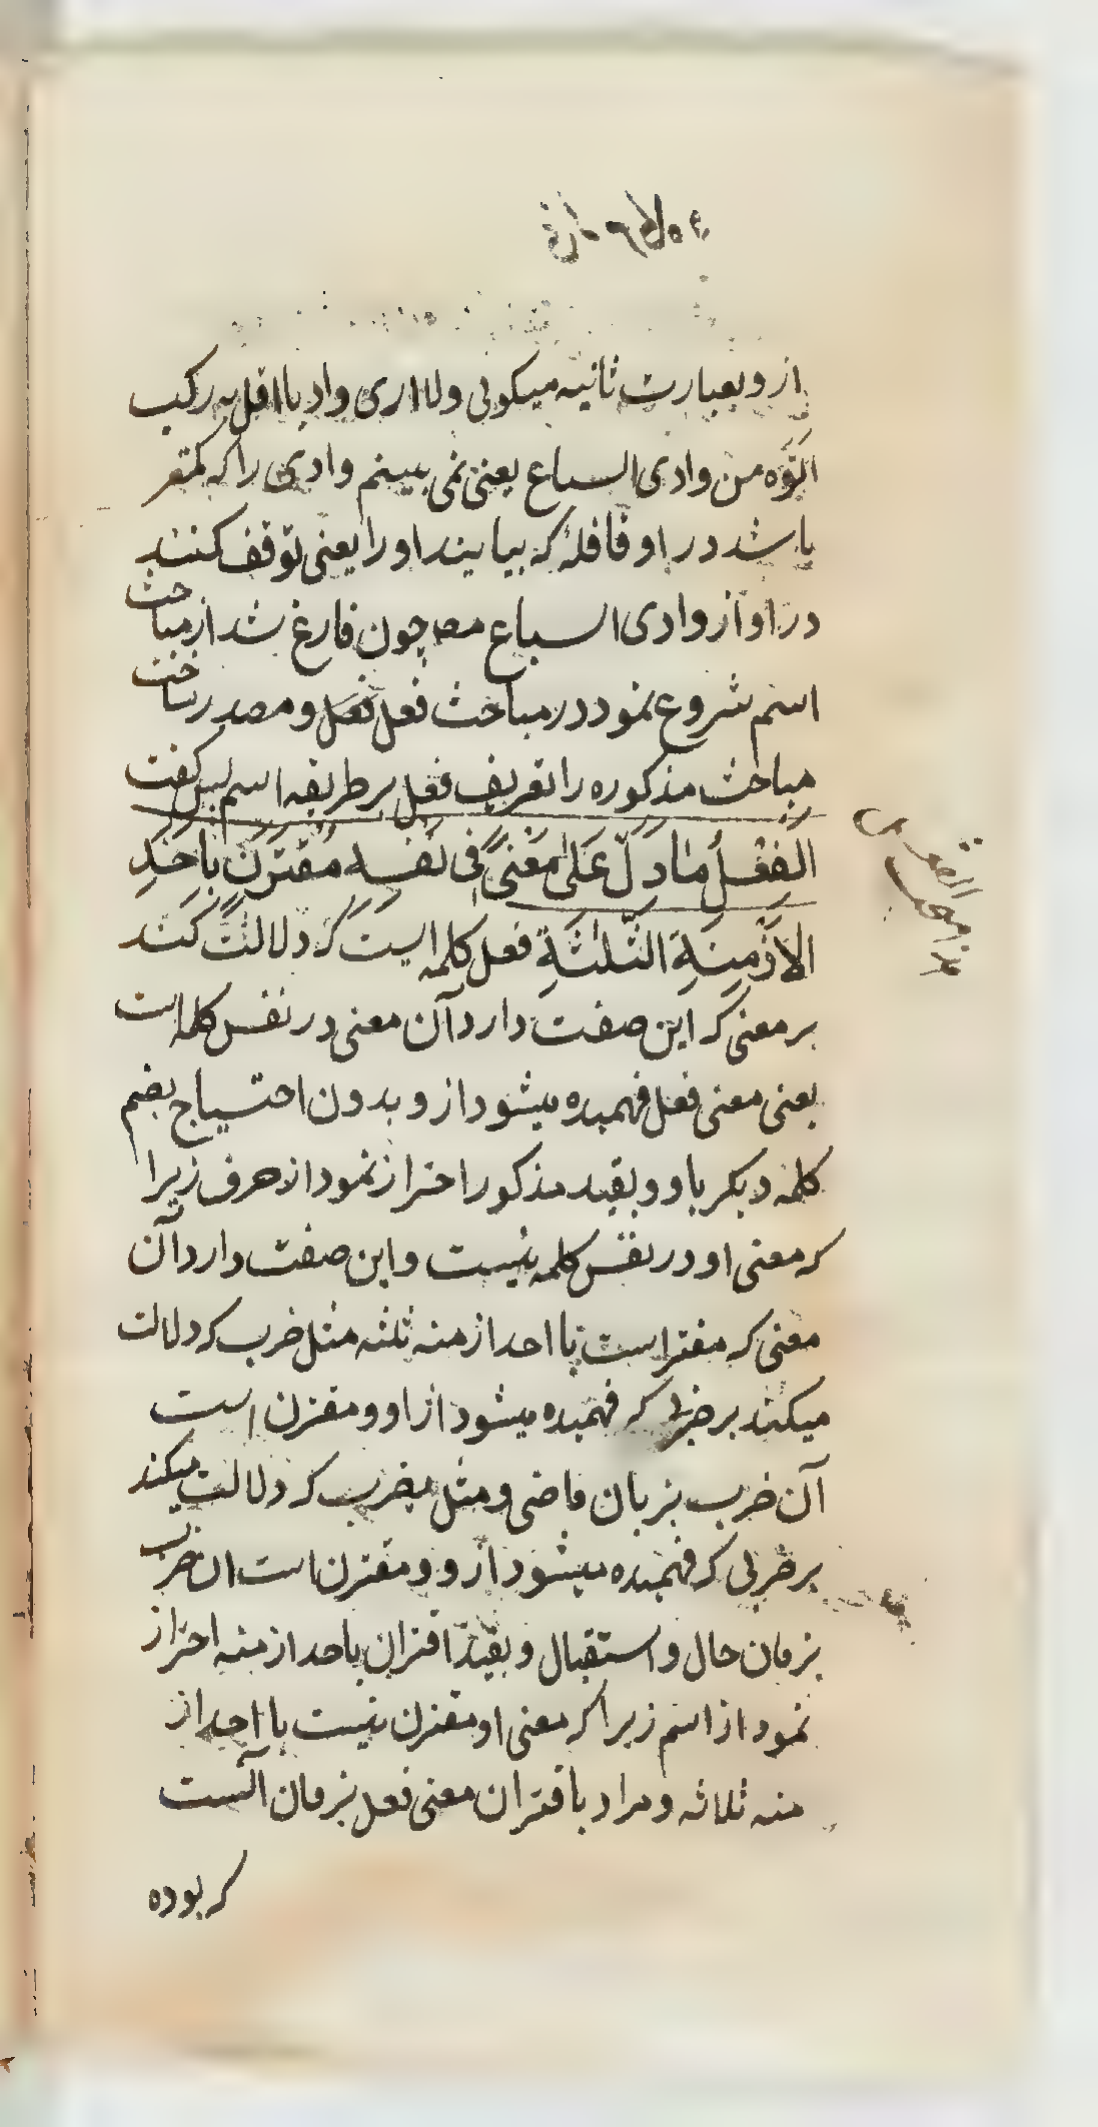 از و بعبارت ثانیه میکوئی ولا اری وادیا اقل به رکب
اتوه من وادی السباع یعنی نمی بینم وادی را که کمتر
باشد در او قافلهٔ که بیایند او را یعنی توقف کنند
در او از وادی السباع مصه چون فارغ شد از مباحث
اسم شروع نمود در مباحث فعل و مصدر ساخت
مباحث مذکوره را بتعریف فعل بر طریقه اسم پس گفت
اَلْفِعْلُ مٰا دَلَّ عَلٰی مَعْنیً فی نَفْسِهِ مُقْتَرَنٍ باَحَدِ
الاَزْمِنَةِ الثَّلٰثَةِ فعل کلمه ایست که دلالت کند
بر معنی که این صفت دارد آن معنی در نفس کلمه است
یعنی معنی فعل فهمیده میشود از و بدون احتیاج بضم
کلمه دیکر باو و بقید مذکور احتراز نمود از حرف زیرا
که معنی او در نفس کلمه نیست و این صفت دارد آن
معنی که مقتر است با احد ازمنه ثلثه مثل ضرب که دلالت
میکند بر ضربی که فهمیده میشود از او و مقترن است
آن ضرب بزمان ماضی و مثل یضرب که دلالت میکند
بر ضربی که فهمیده میشود از و و مقترن است ان ضرب
بزمان حال و استقبال و بقید اقتران باحد ازمنه احتراز
نمود از اسم زیرا که معنی او مقترن نیست با احد از
منه ثلاثه و مراد باقتران معنی فعل بزمان آنست
که بوده